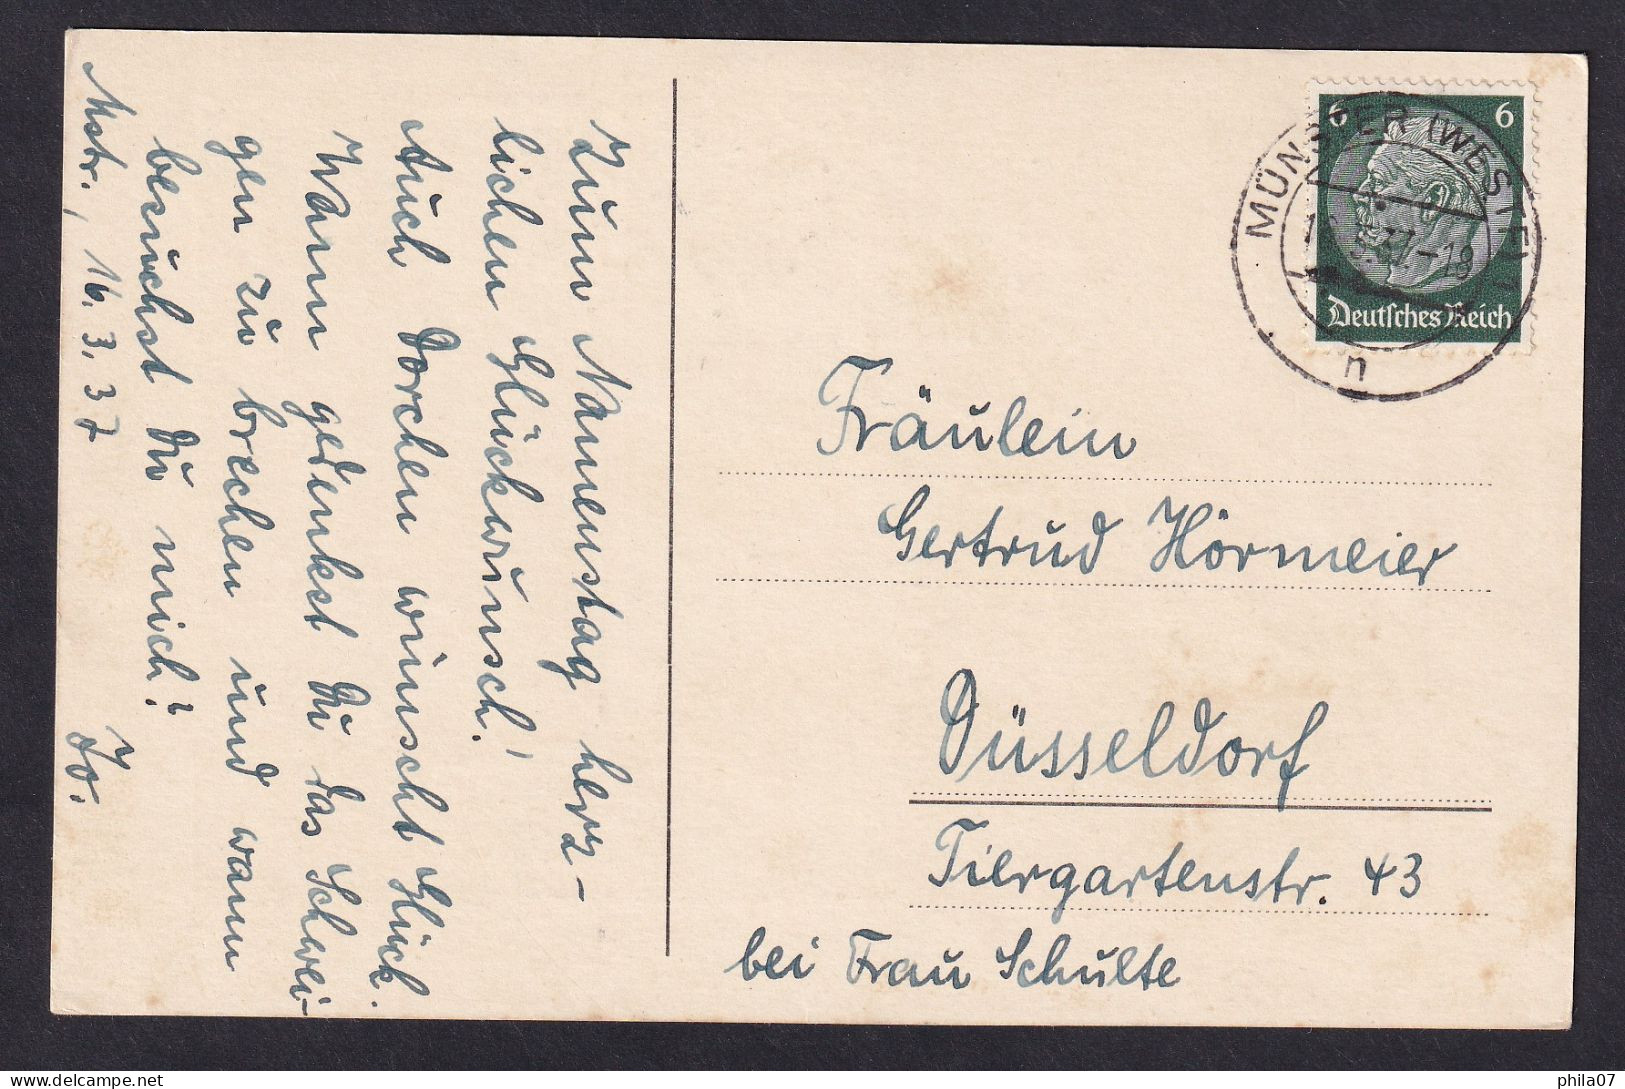 Zum Namenstag herz-
lichen Glückwunsch!
Auch Dorchen wünscht Glück.
Wann gedenkst Du das Schwei-
gen zu brechen und wann
besuchst Du mich?
Mstr., 16.3.37 Jo.
6 6
Deutsches Reich
MÜNSTER (WESTF)
.37.-18
n
Fräulein
Gertrud Hörmeier
Düsseldorf
Tiergartenstr. 43
bei Frau Schulte
phila07